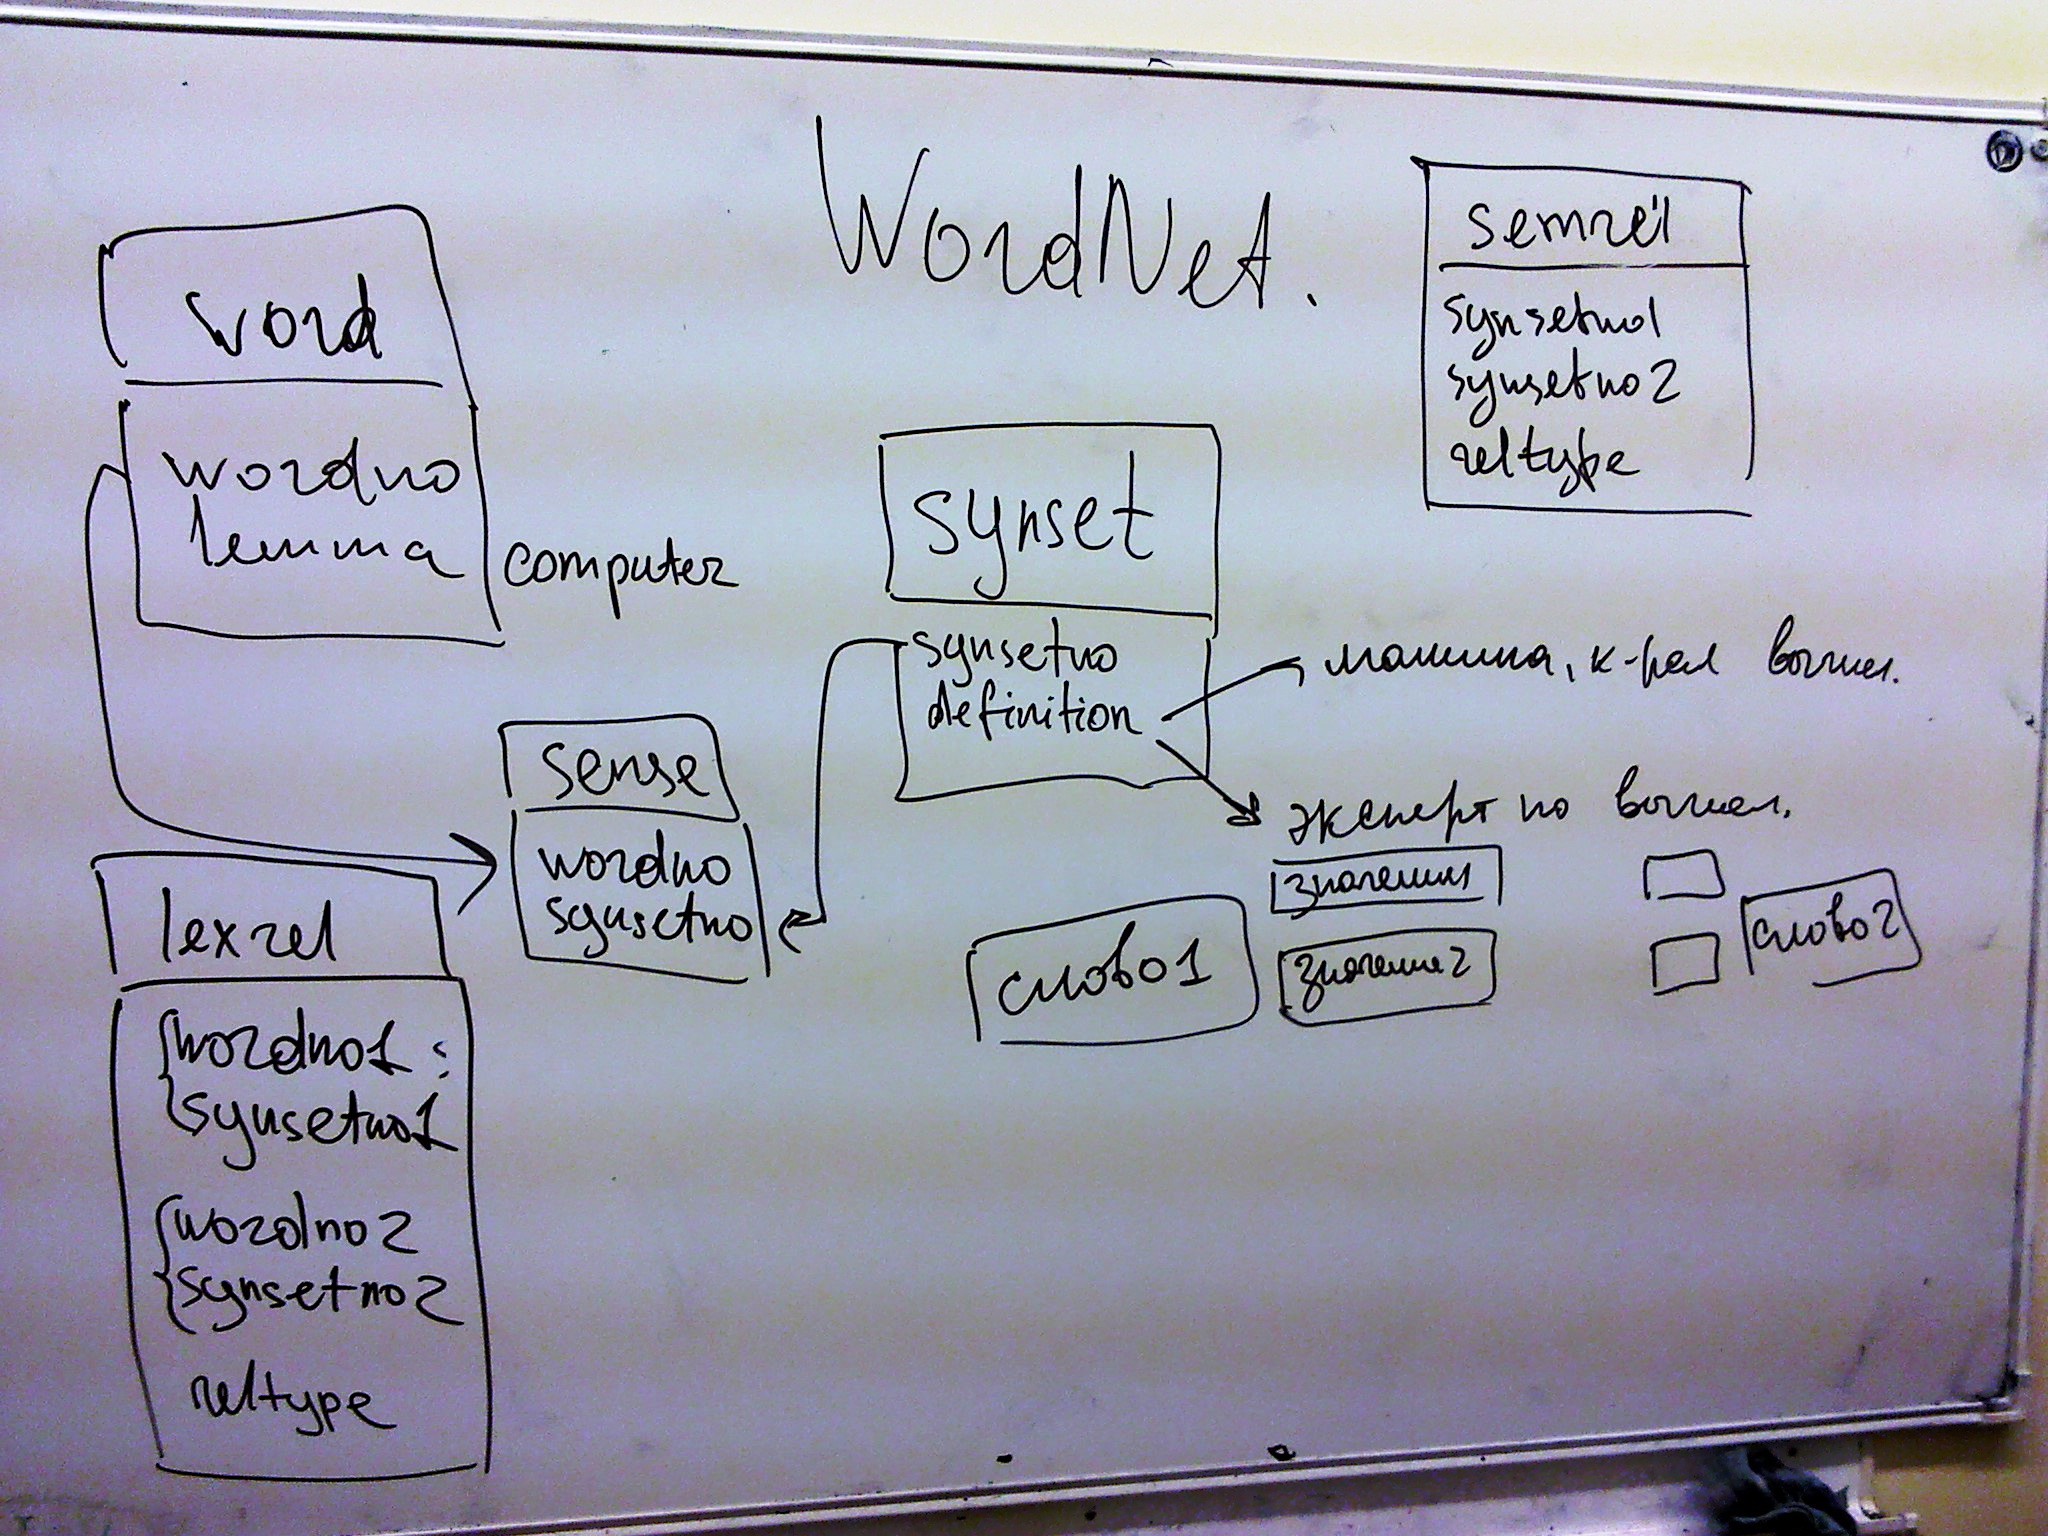 WordNet.
word
wordno
lemma
computer
semrel
synsetno1
synsetno2
reltype
synset
synsetno
definition
машина, к-рая вычисл.
эксперт по вычисл.
sense
wordno
synsetno
lexrel
wordno1
synsetno1
wordno2
synsetno2
reltype
слово1
значение1
значение2
слово2